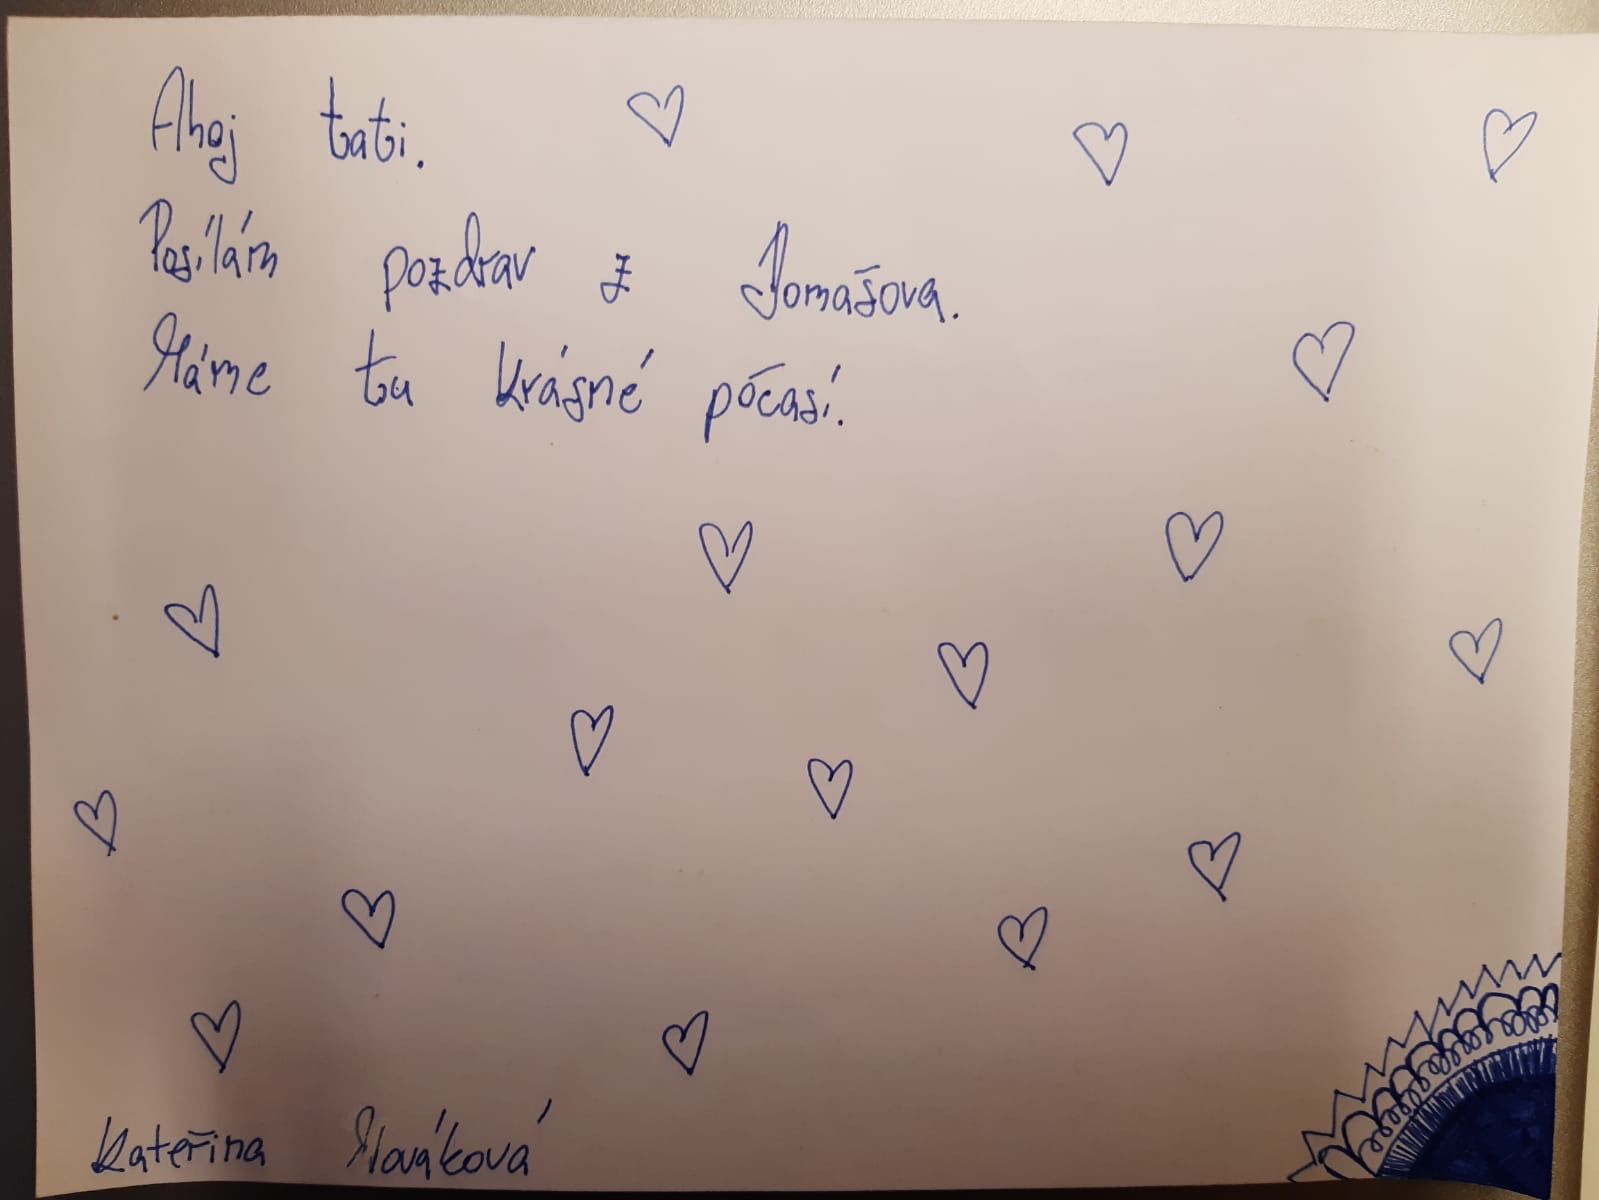 Ahoj tati.
Posílám pozdrav z Domašova.
Máme tu krásné počasí.
Kateřina Nováková